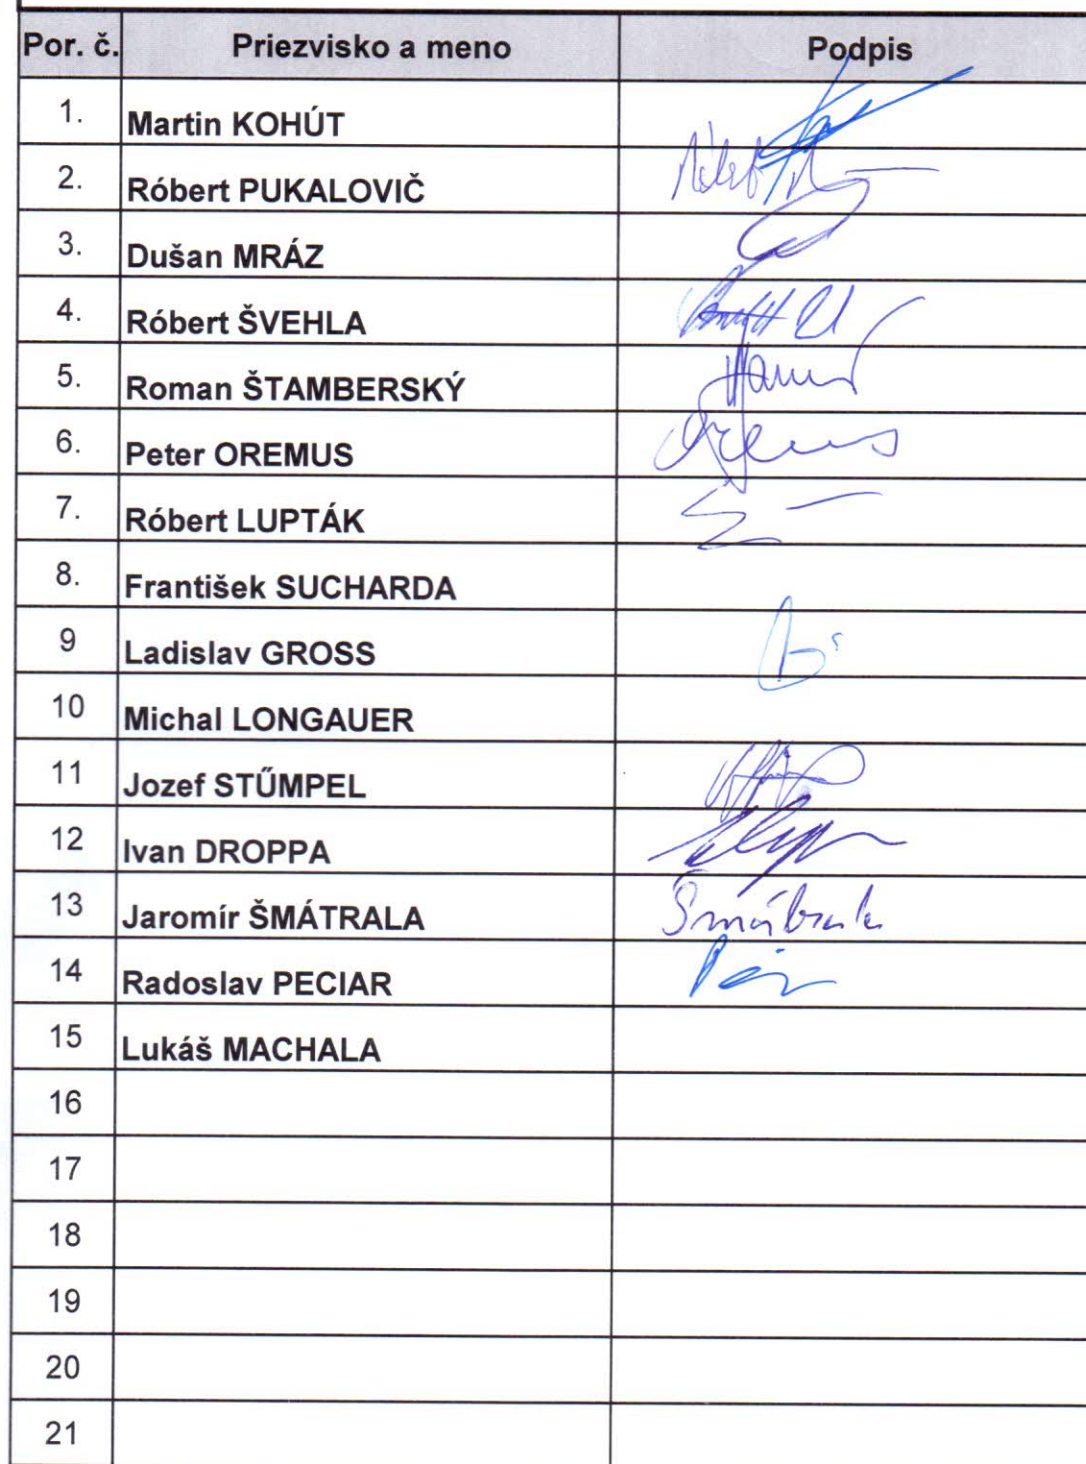 Por. č. Priezvisko a meno Podpis
1. Martin KOHÚT
2. Róbert PUKALOVIČ
3. Dušan MRÁZ
4. Róbert ŠVEHLA
5. Roman ŠTAMBERSKÝ
6. Peter OREMUS Oremus
7. Róbert LUPTÁK
8. František SUCHARDA
9 Ladislav GROSS
10 Michal LONGAUER
11 Jozef STŰMPEL
12 Ivan DROPPA
13 Jaromír ŠMÁTRALA Šmátrala
14 Radoslav PECIAR
15 Lukáš MACHALA
16
17
18
19
20
21